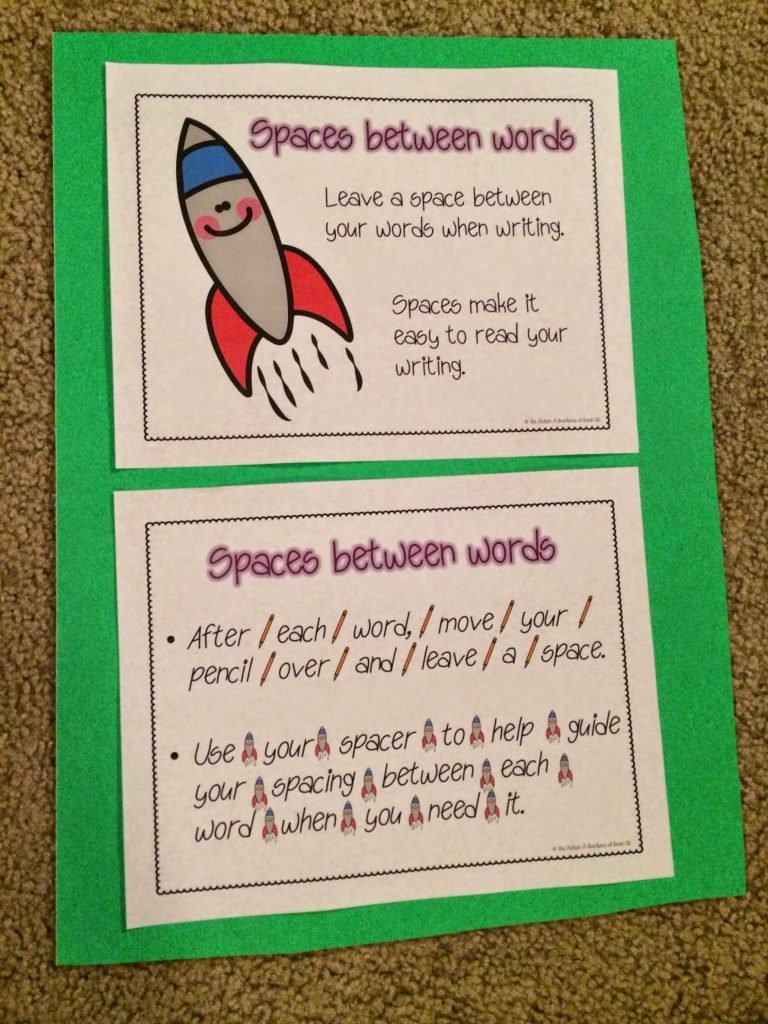 Spaces between words
Leave a space between
your words when writing.
Spaces make it
easy to read your
writing.
Spaces between words
• After each word, move your
pencil over and leave a space.
• Use your spacer to help guide
your spacing between each
word when you need it.